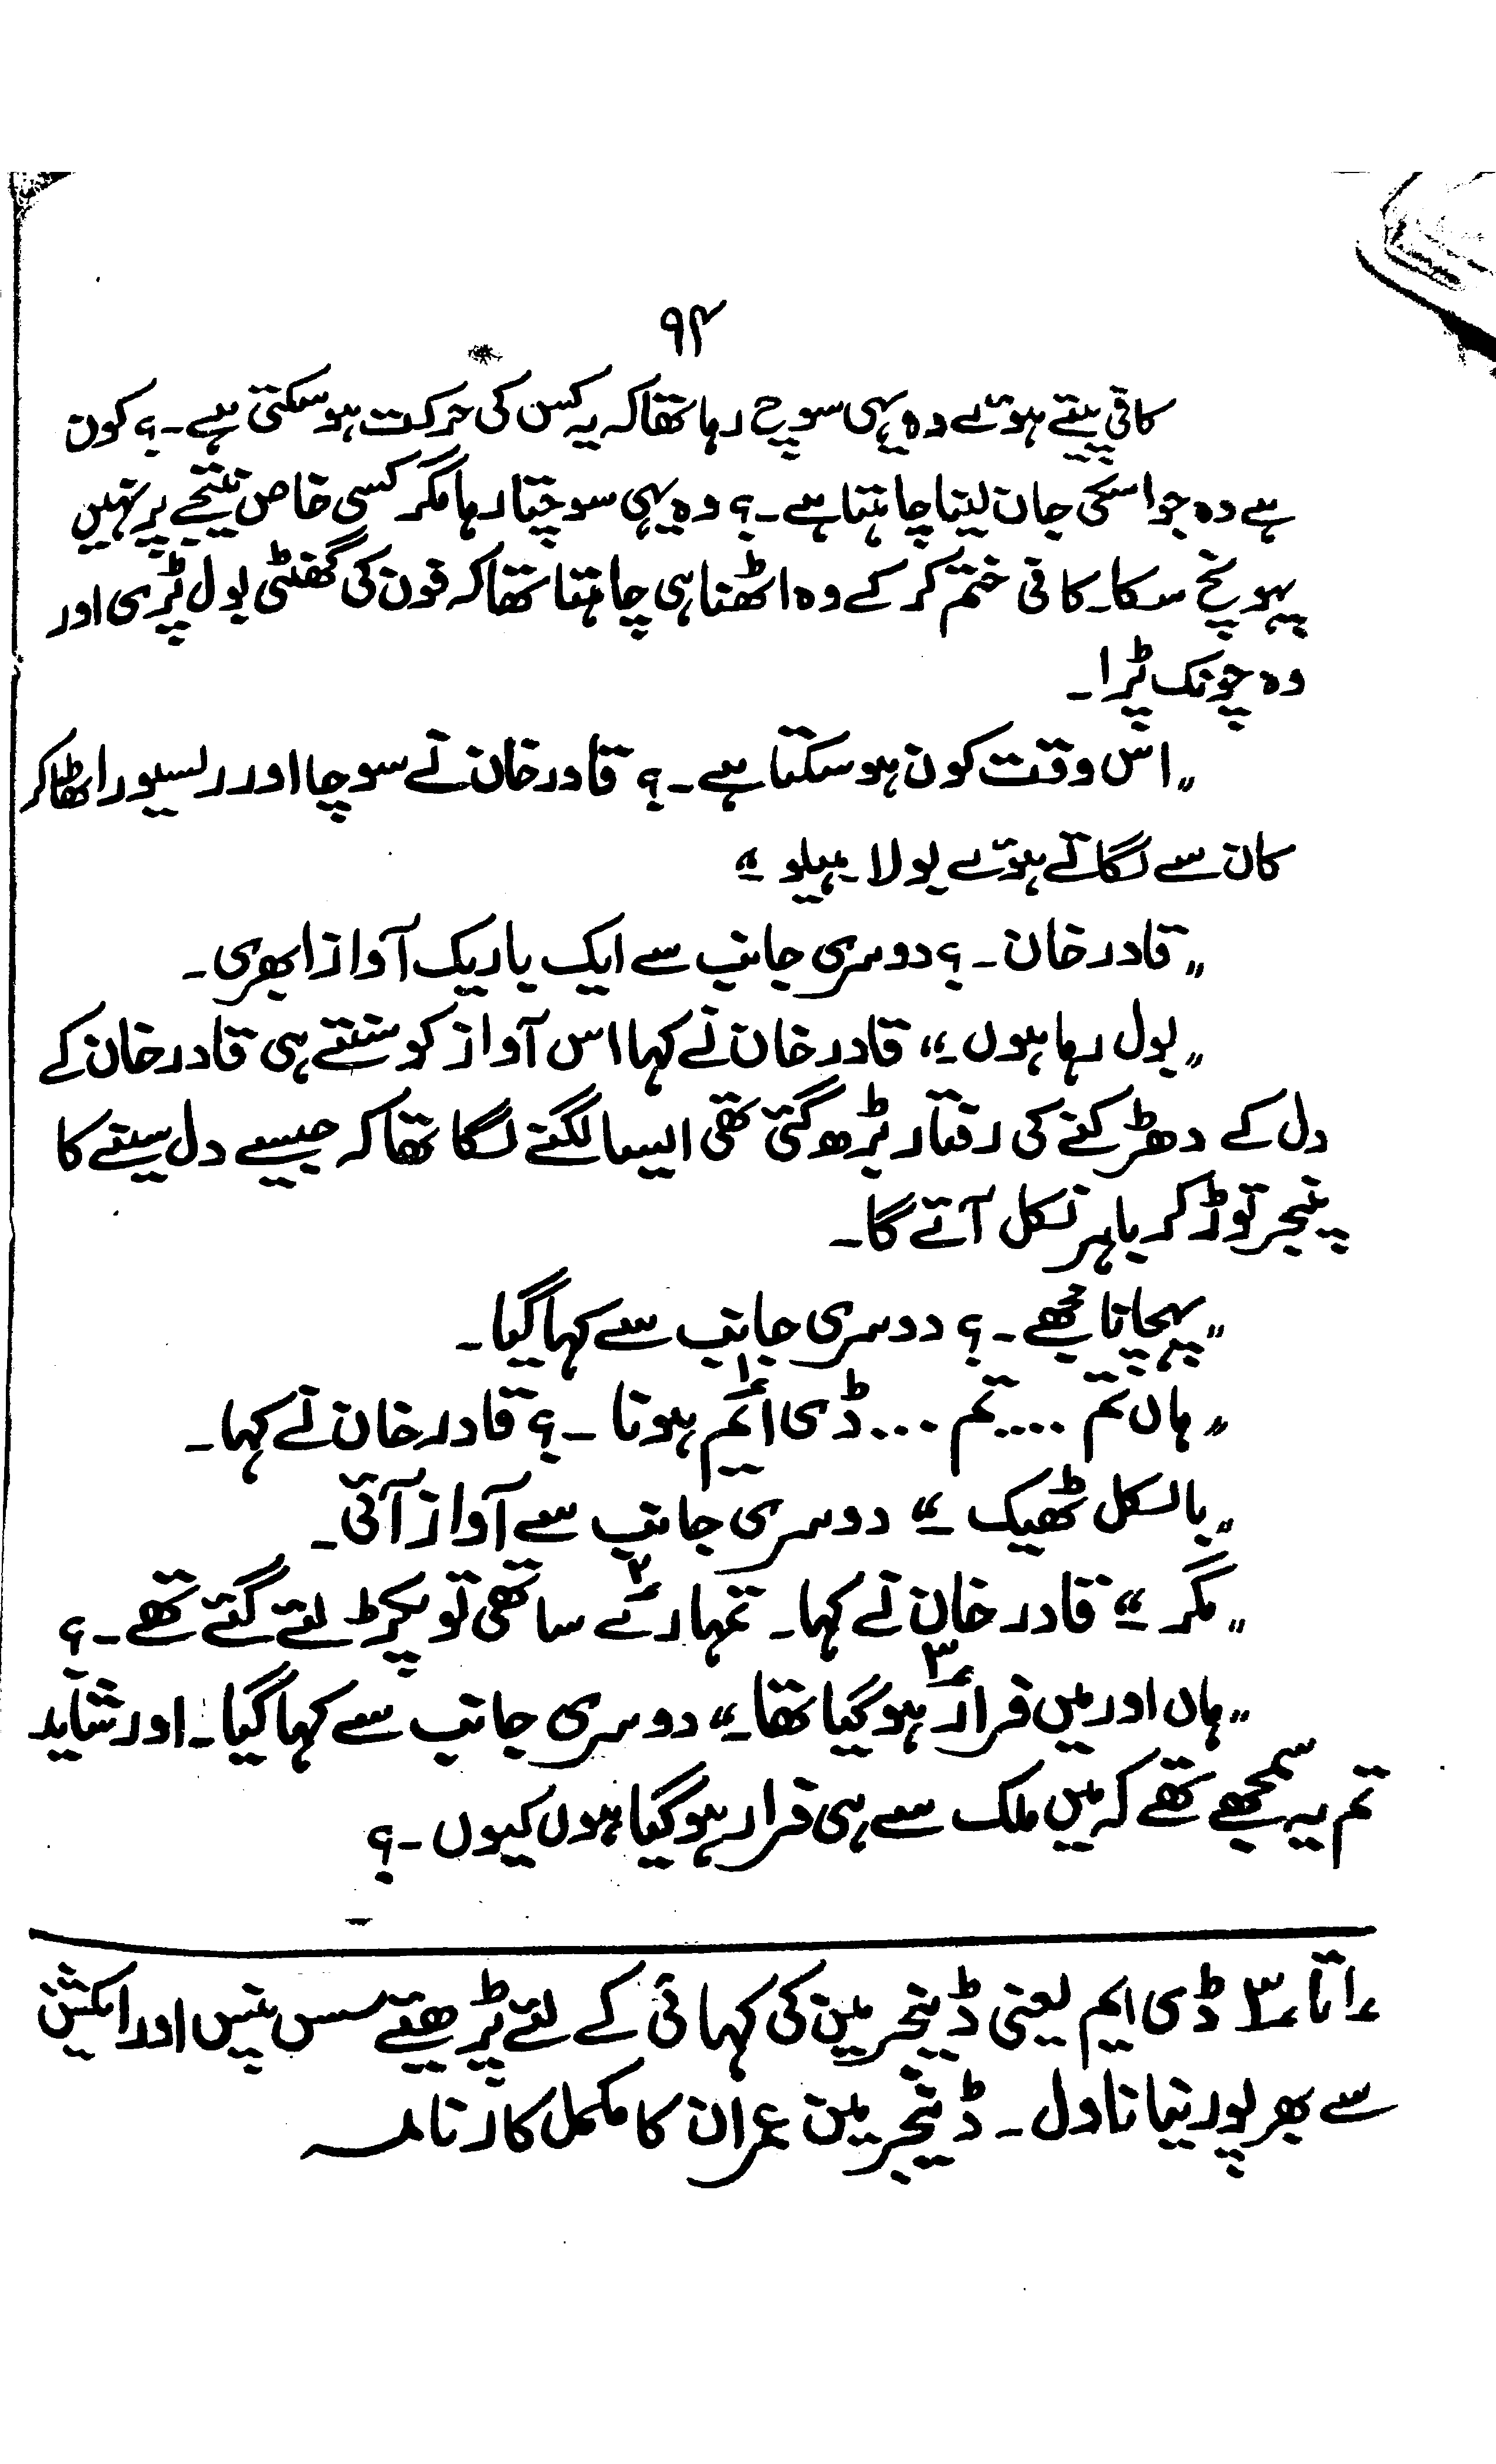 ۹۴
کافی پیتے ہوئے وہ یہی سوچ رہا تھا کہ یہ کس کی حرکت ہو سکتی ہے۔؟ کون
ہے وہ جو اسکی جان لینا چاہتا ہے۔؟ وہ یہی سوچتا رہا مگر کسی خاص نتیجے پر نہیں
پہونچ سکا۔ کافی ختم کر کے وہ اٹھنا ہی چاہتا تھا کہ فون کی گھنٹی بول پڑی اور
وہ چونک پڑا۔
"اس وقت کون ہو سکتا ہے۔؟ قادر خان نے سوچا اور رسیور اٹھا کر
کان سے لگاتے ہوئے بولا۔ ہیلو۔"
"قادر خان۔؟ دوسری جانب سے ایک باریک آواز ابھری۔
"بول رہا ہوں۔" قادر خان نے کہا اس آواز کو سنتے ہی قادر خان کے
دل کے دھڑکنے کی رفتار بڑھ گئی تھی ایسا لگنے لگا تھا کہ جیسے دل سینے کا
پنجر توڑ کر باہر نکل آئے گا۔
"پہچانا مجھے۔؟ دوسری جانب سے کہا گیا۔
"ہاں تم .... تم ... ڈی ایم ؑ۱ ہونا۔؟ قادر خان نے کہا۔
"بالکل ٹھیک۔" دوسری جانب سے آواز آئی۔
"مگر۔" قادر خان نے کہا۔ تمہارے ؑ۲ ساتھی تو پکڑ لئے گئے تھے۔؟
"ہاں اور میں فرار ؑ۳ ہو گیا تھا۔" دوسری جانب سے کہا گیا۔ اور شاید
تم یہ سمجھے تھے کہ میں ملک سے ہی فرار ہو گیا ہوں کیوں۔؟
ؑ۱ تا ؑ۳ ڈی ایم یعنی ڈینجر مین کی کہانی کے لئے پڑھیئے سس پنس اور ایکشن
سے بھر پور نیا ناول۔ ڈینجر مین عمران کا مکمل کارنامہ